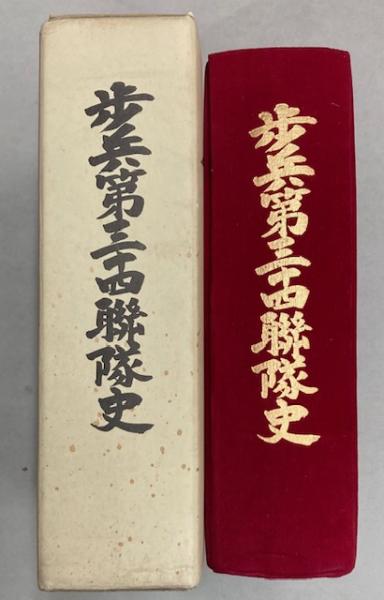 歩兵第三十四聯隊史
歩兵第三十四聯隊史